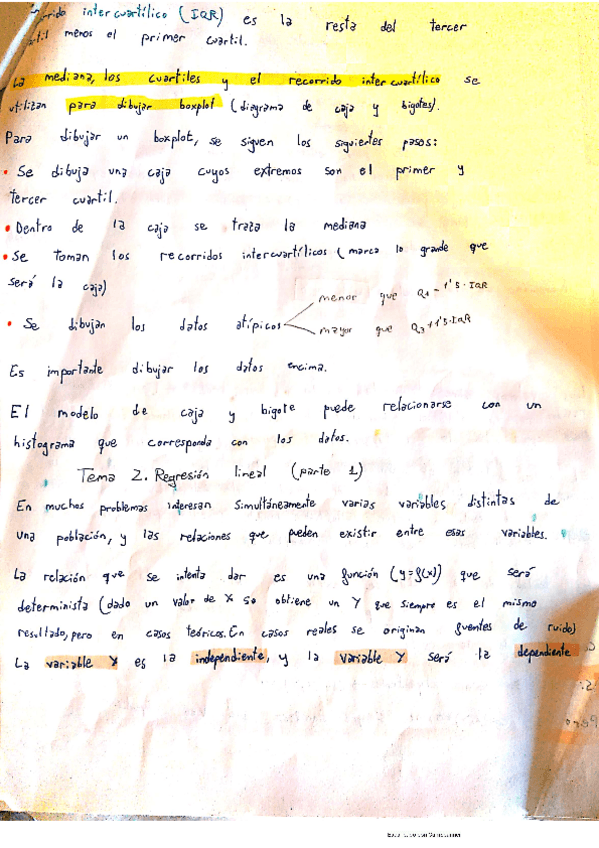 intercuartílico (IQR) es la resta del tercer
menos el primer cuartil.
La mediana, los cuartiles y el recorrido intercuartílico se
utilizan para dibujar boxplot (diagrama de caja y bigotes).
Para dibujar un boxplot, se siguen los siguientes pasos:
• Se dibuja una caja cuyos extremos son el primer y
tercer cuartil.
• Dentro de la caja se traza la mediana
• Se toman los recorridos intercuartílicos (marca lo grande que
será la caja)
menor que Q1 - 1'5 · IQR
• Se dibujan los datos atípicos
mayor que Q3 + 1'5 · IQR
Es importante dibujar los datos encima.
El modelo de caja y bigote puede relacionarse con un
histograma que corresponda con los datos.
Tema 2. Regresión lineal (parte 1)
En muchos problemas interesan simultáneamente varias variables distintas de
una población, y las relaciones que pueden existir entre esas variables.
La relación que se intenta dar es una función (y=f(x)) que será
determinista (dado un valor de X se obtiene un Y que siempre es el mismo
resultado, pero en casos teóricos. En casos reales se originan fuentes de ruido)
La variable X es la independiente, y la variable Y será la dependiente